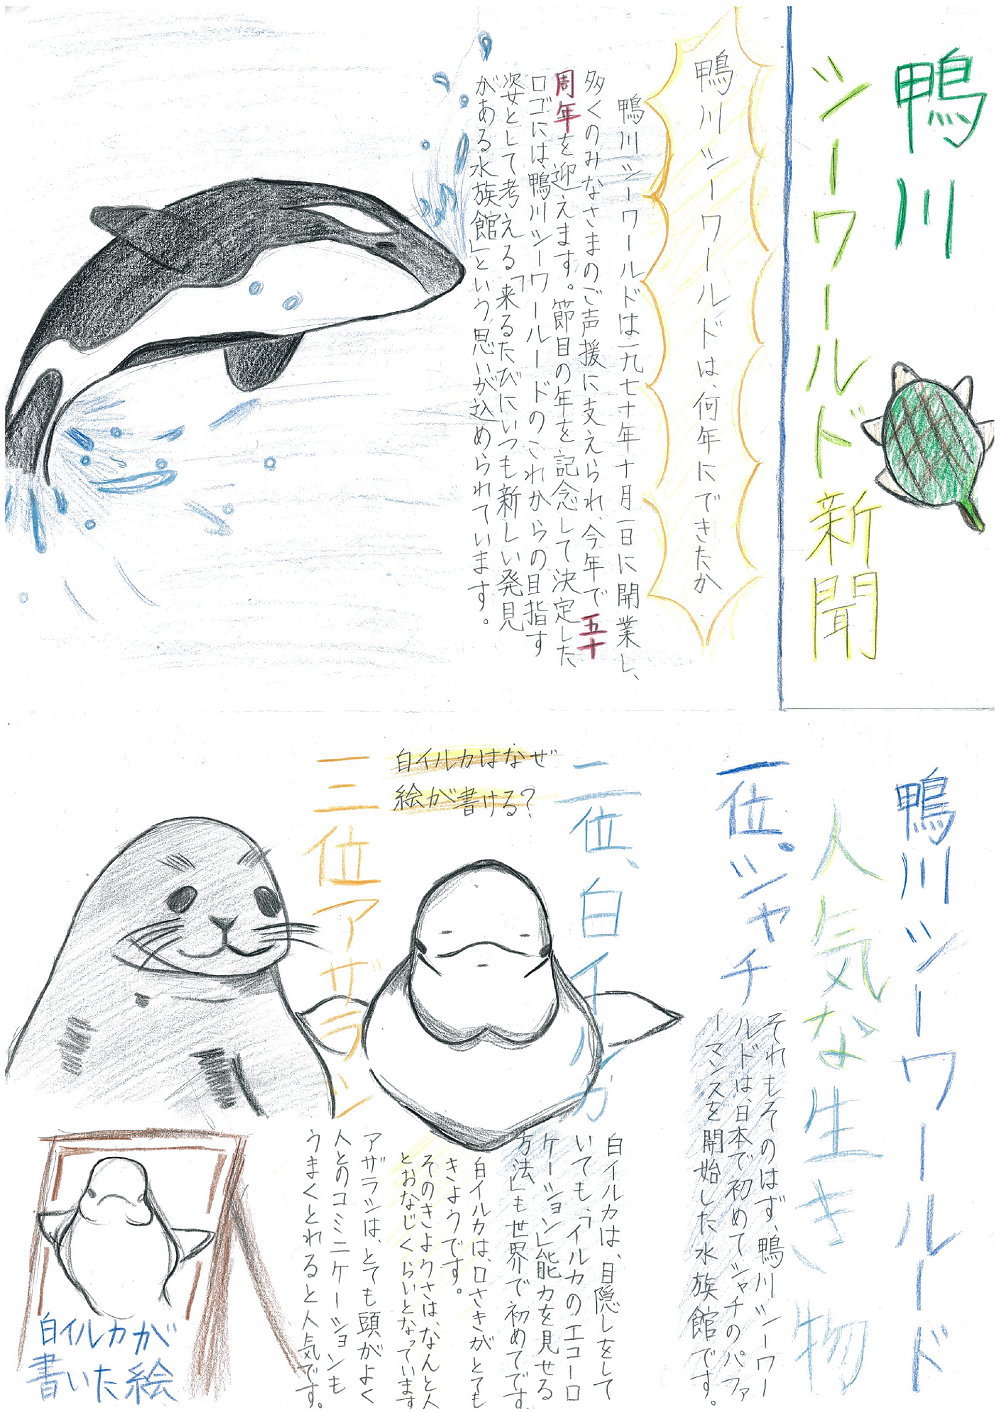 鴨川
シーワールド新聞
鴨川シーワールドは、何年にできたか
鴨川シーワールドは一九七十年十月一日に開業し、
多くのみなさまのご声援に支えられ、今年で五十
周年を迎えます。節目の年を記念して決定した
ロゴには、鴨川シーワールードのこれからの目指す
姿として考える「来るたびにいつも新しい発見
がある水族館」という思いが込められています。
鴨川シーワールード
人気な生き物
一位、シャチ
それもそのはず、鴨川シーワー
ルドは、日本で初めてシャチのパファ
ーマンスを開始した水族館です。
二位、白イルカ
白イルカはなぜ
絵が書ける?
白イルカは、目隠しをして
いても、「イルカのエコーロ
ケーション」能力を見せる
方法」も世界で初めてです。
白イルカは口さきがとても
きようです。
そのきようさは、なんと人
とおなじくらいとなっています
三位アザラシ
アザラシは、とても頭がよく
人とのコミニケーションも
うまくとれると人気です。
白イルカが
書いた絵